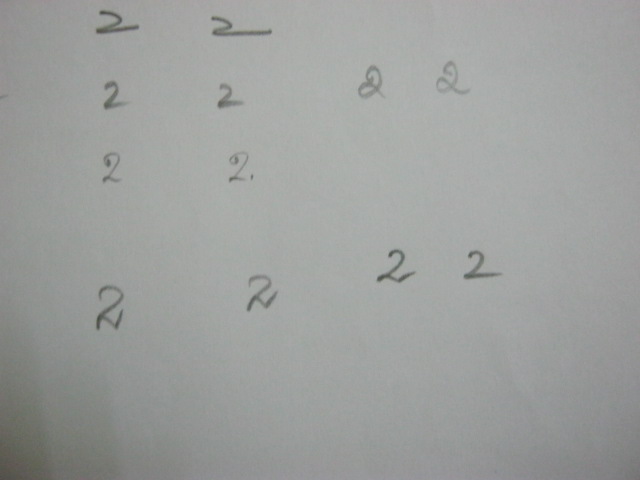 2 2
2 2 2 2
2 2.
2 2 2 2